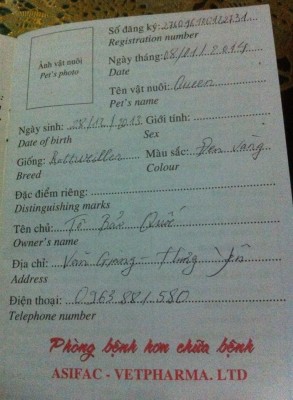 Ảnh vật nuôi
Pet's photo
Số đăng ký:
Registration number
Ngày tháng: 08/01/2014
Date
Tên vật nuôi: Queen
Pet's name
Ngày sinh: 28/12/2013 Giới tính:
Date of birth Sex
Giống: Rottweiller Màu sắc: Đen vàng
Breed Colour
Đặc điểm riêng:
Distinguishing marks
Tên chủ: Tô Bảo Quốc
Owner's name
Địa chỉ: Văn Giang - Hưng Yên
Address
Điện thoại: 0963 881 580
Telephone number
Phòng bệnh hơn chữa bệnh
ASIFAC - VETPHARMA. LTD